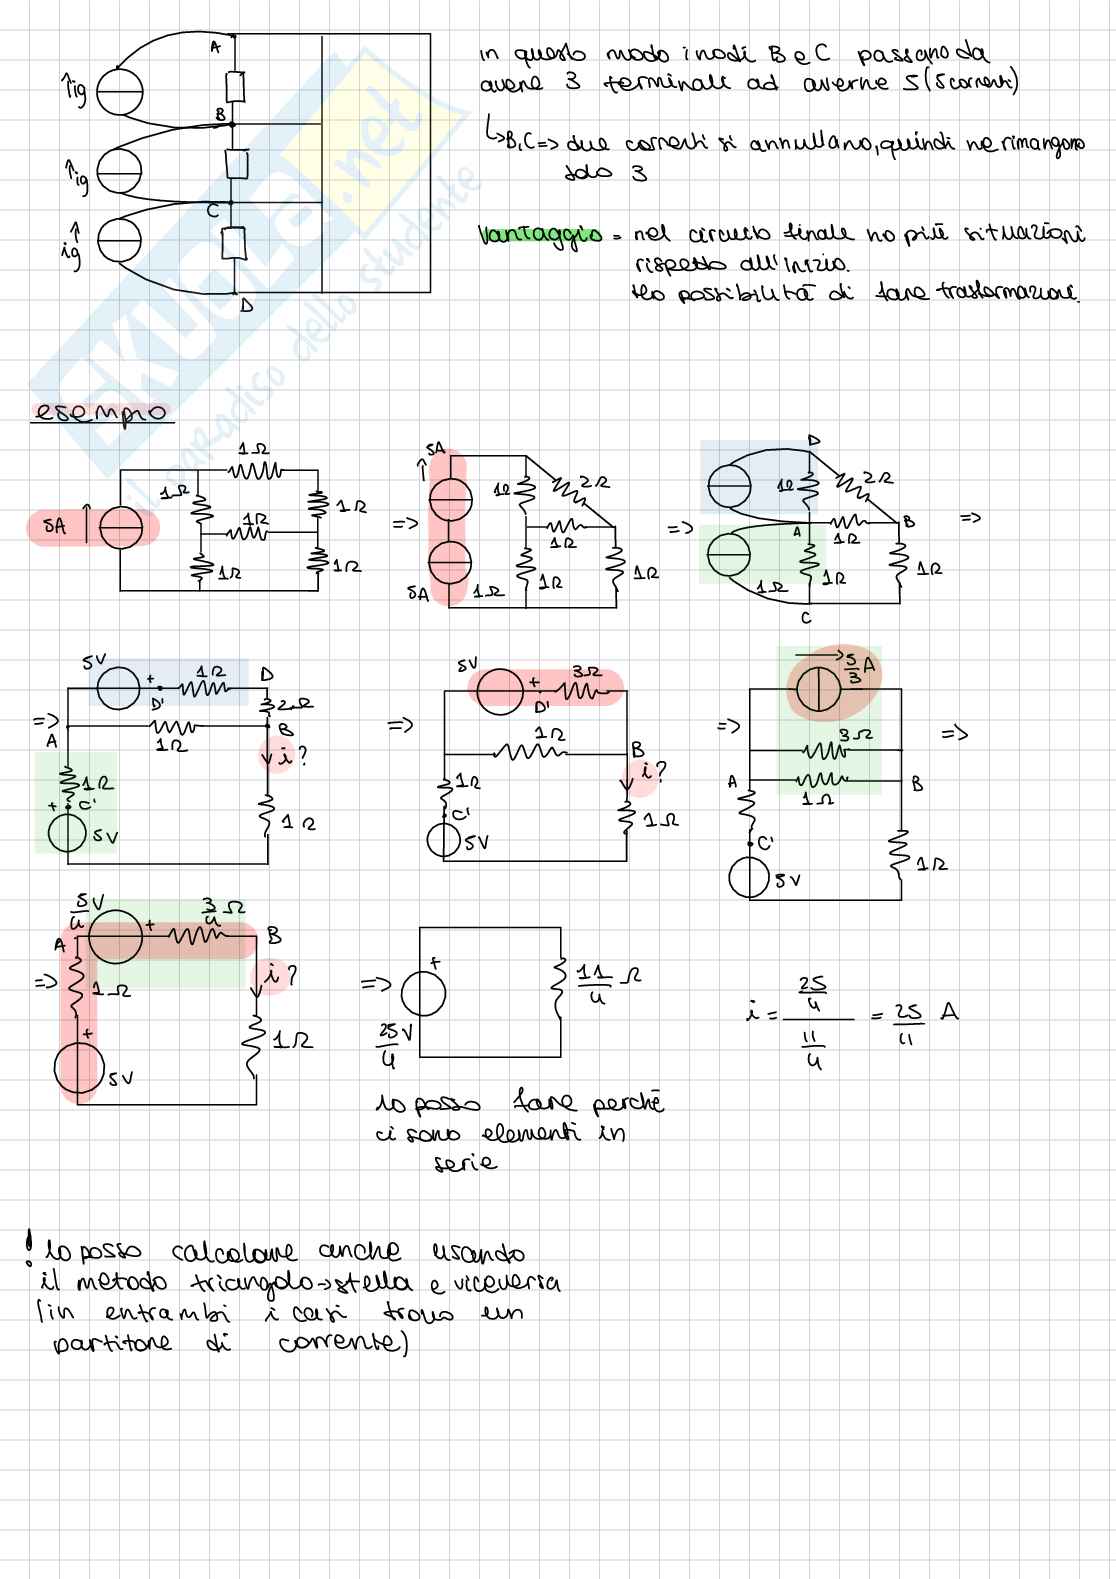 A
↑ig
B
↑ig
C
↑
ig
D
in questo modo i nodi B e C passano da
avere 3 terminali ad averne 5 (5 correnti)
↳B,C => due correnti si annullano, quindi ne rimangono
solo 3
Vantaggio = nel circuito finale ho più situazioni
rispetto all'inizio.
Ho possibilità di fare trasformazioni.
SKUOLA.net
il paradiso dello studente
esempio
5A
1Ω
1Ω
1Ω
1Ω
1Ω
1Ω
=>
5A
1Ω
2Ω
1Ω
1Ω
1Ω
5A
1Ω
=>
D
1Ω
2Ω
A
1Ω
B
1Ω
1Ω
1Ω
C
=>
=>
5V
+
D'
1Ω
D
2Ω
A
1Ω
B
i?
1Ω
+
C'
5V
1Ω
=>
5V
+
D'
3Ω
1Ω
B
i?
1Ω
C'
5V
1Ω
=>
5/3 A
3Ω
A
1Ω
B
C'
5V
1Ω
=>
=>
5/4 V
+
3/4 Ω
A
B
1Ω
i?
+
5V
1Ω
=>
+
25/4 V
11/4 Ω
i = (25/4)/(11/4) = 25/11 A
lo posso fare perchè
ci sono elementi in
serie
! lo posso calcolare anche usando
il metodo triangolo->stella e viceversa
(in entrambi i casi trovo un
partitore di corrente)